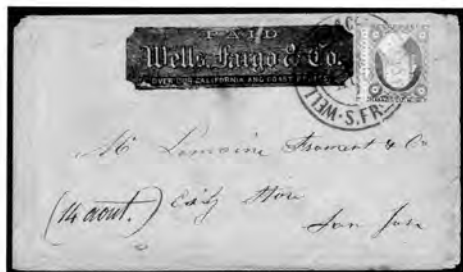 PAID
Wells, Fargo & Co.
OVER OUR CALIFORNIA AND COAST ROUTES
WELL S.FR
Mr Lemoine Froment & Co
(14 aout.) City Store
San Jose